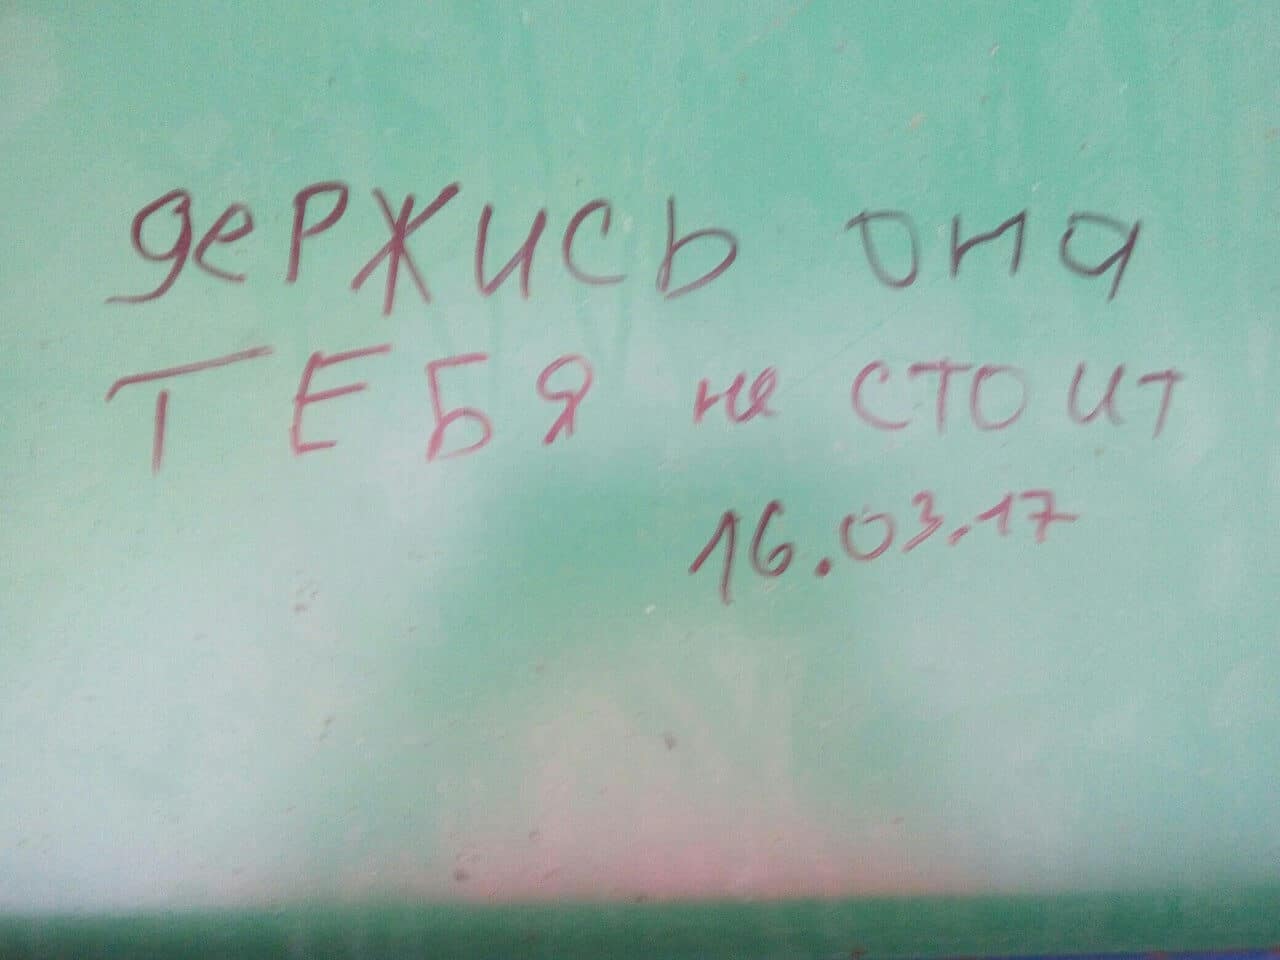 держись она
ТЕБЯ не стоит
16.03.17